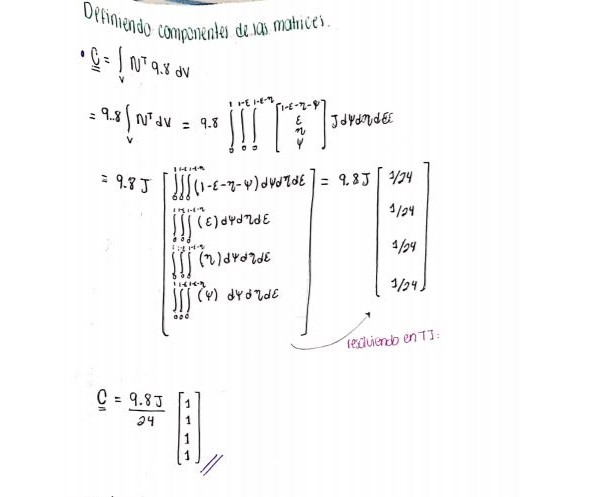 Definiendo componentes de las matrices.
• C = ∫ᵥ Nᵀ 9.8 dV
= 9.8 ∫ᵥ Nᵀ dV = 9.8 ∫₀¹ ∫₀^(1-ε) ∫₀^(1-ε-η) [1-ε-η-ψ ε η ψ] J dψ dη dε
= 9.8 J [ ∫₀¹ ∫₀^(1-ε) ∫₀^(1-ε-η) (1-ε-η-ψ) dψ dη dε ] = 9.8 J [ 1/24
∫∫∫ (ε) dψ dη dε 1/24
∫∫∫ (η) dψ dη dε 1/24
∫∫∫ (ψ) dψ dη dε 1/24 ]
resolviendo en TI:
C = 9.8 J / 24 [ 1
1
1
1 ] //